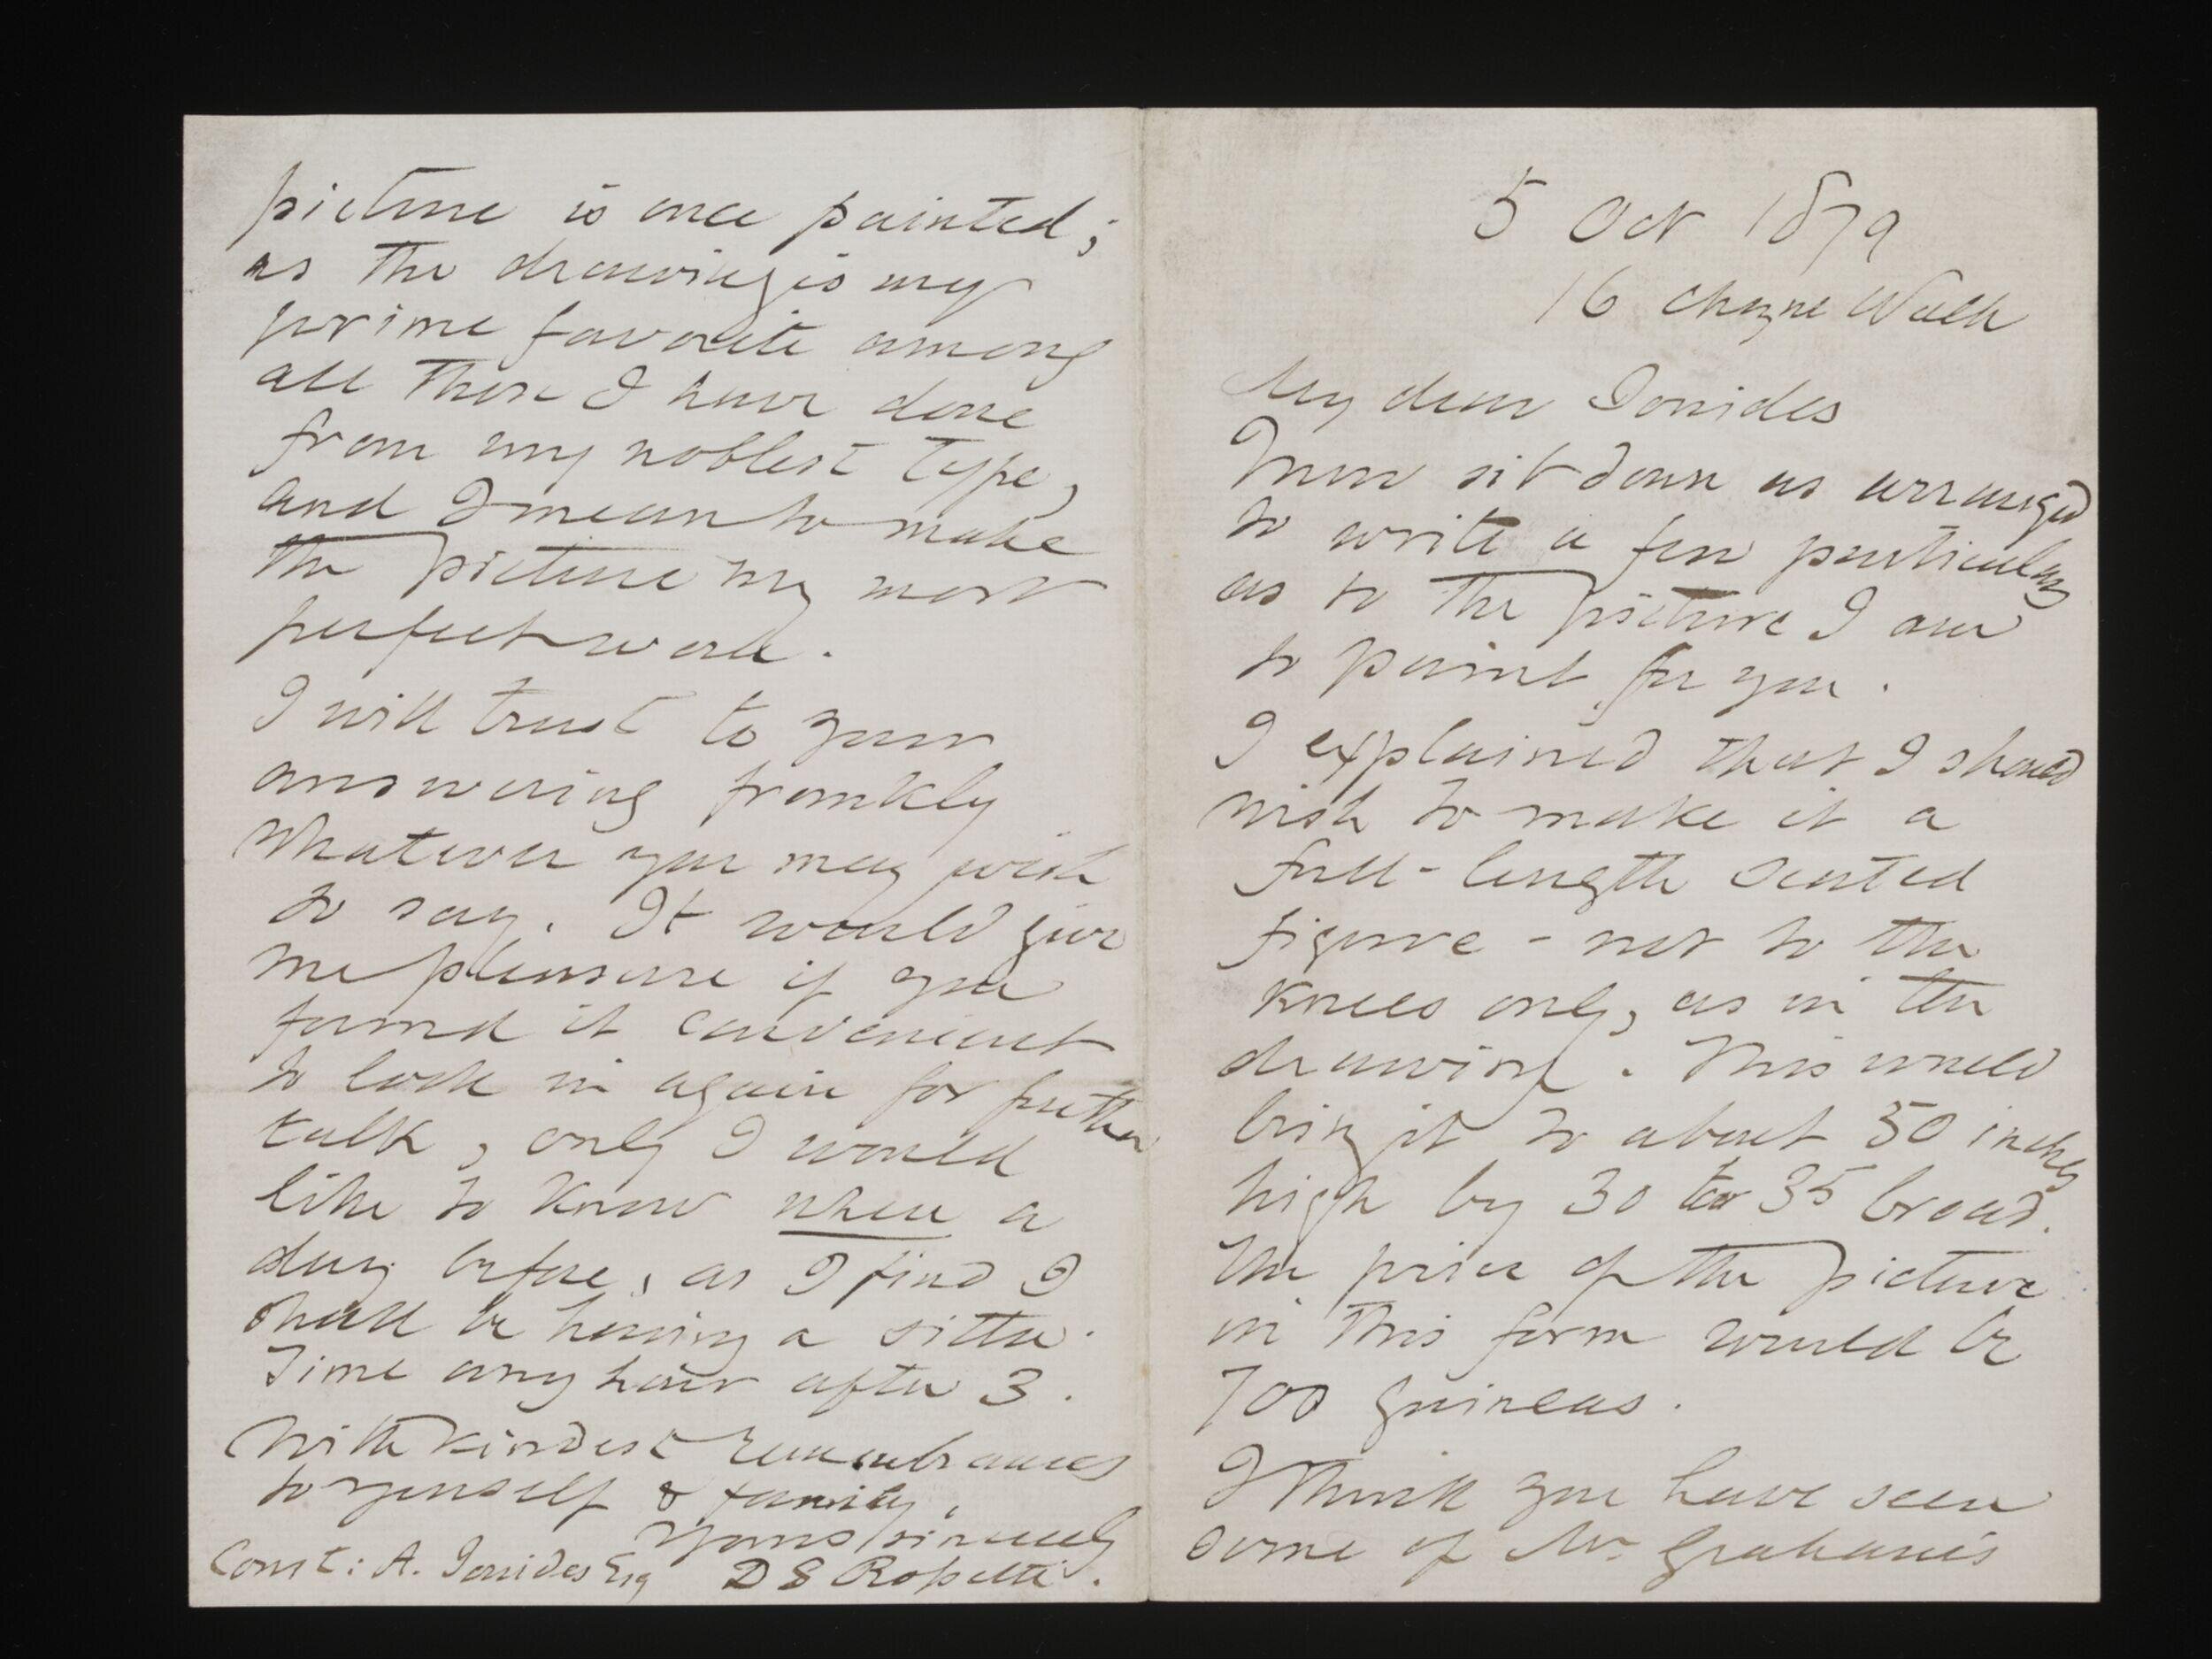 5 Oct 1879
16 Cheyne Walk
My dear Ionides
I now sit down as arranged
to write a few particulars
as to the picture I am
to paint for you.
I explained that I should
wish to make it a
full-length seated
figure - not to the
knees only, as in the
drawing. This would
bring it to about 50 inches
high by 30 to 35 broad.
The price of the picture
in this form would be
700 guineas.
I think you have seen
some of Mr. Graham's
picture is once painted;
as the drawing is my
prime favorite among
all those I have done
from my noblest type,
and I mean to make
the picture my most
perfect work.
I will trust to your
answering frankly
whatever you may wish
to say. It would give
me pleasure if you
found it convenient
to look in again for further
talk, only I would
like to know when a
day before, as I find I
shall be having a sitter.
Time any hour after 3.
With kindest remembrances
to yourself & family,
Yours sincerely
Const: A. Ionides Esq D G Rossetti.